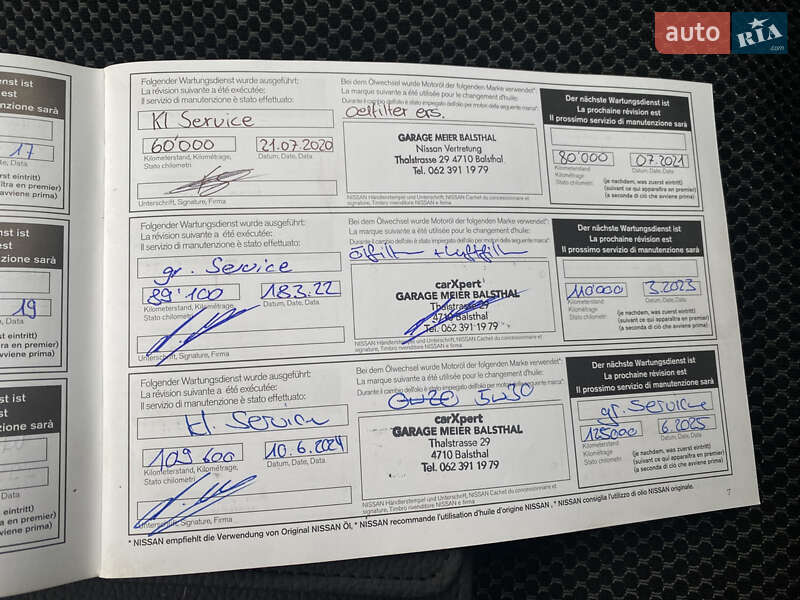 auto RIA .com
enst ist
est
anutenzione sarà
17
e, Data, Data
eintritt)
aîtra en premier)
avviene prima)
Folgender Wartungsdienst wurde ausgeführt:
La révision suivante a été exécutée:
Il servizio di manutenzione è stato effettuato:
Kl Service
60'000 21.07.2020
Kilometerstand, Kilométrage, Datum, Date, Data
Stato chilometri
Unterschrift, Signature, Firma
Bei dem Ölwechsel wurde Motoröl der folgenden Marke verwendet*:
La marque suivante a été utilisée pour le changement d'huile:
Durante il cambio dell'olio è stato impiegato olio per motori della seguente marca*:
Oelfilter ers.
GARAGE MEIER BALSTHAL
Nissan Vertretung
Thalstrasse 29 4710 Balsthal
Tel. 062 391 19 79
NISSAN Händlerstempel und Unterschrift, NISSAN Cachet du concessionnaire et
signature, Timbro rivenditore NISSAN e firma
Der nächste Wartungsdienst ist
La prochaine révision est
Il prossimo servizio di manutenzione sarà
80'000 07.2021
Kilometerstand Datum, Date, Data
Kilométrage
Stato chilometri
(je nachdem, was zuerst eintritt)
(suivant ce qui apparaîtra en premier)
(a seconda di ciò che avviene prima)
19
Folgender Wartungsdienst wurde ausgeführt:
La révision suivante a été exécutée:
Il servizio di manutenzione è stato effettuato:
gr. Service
89'100 18.3.22
Kilometerstand, Kilométrage, Datum, Date, Data
Stato chilometri
Unterschrift, Signature, Firma
Bei dem Ölwechsel wurde Motoröl der folgenden Marke verwendet*:
La marque suivante a été utilisée pour le changement d'huile:
Durante il cambio dell'olio è stato impiegato olio per motori della seguente marca*:
carXpert
GARAGE MEIER BALSTHAL
Thalstrasse 29
4710 Balsthal
Tel. 062 391 19 79
NISSAN Händlerstempel und Unterschrift, NISSAN Cachet du concessionnaire et
signature, Timbro rivenditore NISSAN e firma
Der nächste Wartungsdienst ist
La prochaine révision est
Il prossimo servizio di manutenzione sarà
110'000 3.2023
Kilometerstand Datum, Date, Data
Kilométrage
Stato chilometri
(je nachdem, was zuerst eintritt)
(suivant ce qui apparaîtra en premier)
(a seconda di ciò che avviene prima)
Folgender Wartungsdienst wurde ausgeführt:
La révision suivante a été exécutée:
Il servizio di manutenzione è stato effettuato:
kl. Service
109'600 10.6.2024
Kilometerstand, Kilométrage, Datum, Date, Data
Stato chilometri
Unterschrift, Signature, Firma
Bei dem Ölwechsel wurde Motoröl der folgenden Marke verwendet*:
La marque suivante a été utilisée pour le changement d'huile:
Durante il cambio dell'olio è stato impiegato olio per motori della seguente marca*:
5W30
carXpert
GARAGE MEIER BALSTHAL
Thalstrasse 29
4710 Balsthal
Tel. 062 391 19 79
NISSAN Händlerstempel und Unterschrift, NISSAN Cachet du concessionnaire et
signature, Timbro rivenditore NISSAN e firma
Der nächste Wartungsdienst ist
La prochaine révision est
Il prossimo servizio di manutenzione sarà
gr. Service
125000 6.2025
Kilometerstand Datum, Date, Data
Kilométrage
Stato chilometri
(je nachdem, was zuerst eintritt)
(suivant ce qui apparaîtra en premier)
(a seconda di ciò che avviene prima)
7
* NISSAN empfiehlt die Verwendung von Original NISSAN Öl, * NISSAN recommande l'utilisation d'huile d'origine NISSAN, * NISSAN consiglia l'utilizzo di olio NISSAN originale.